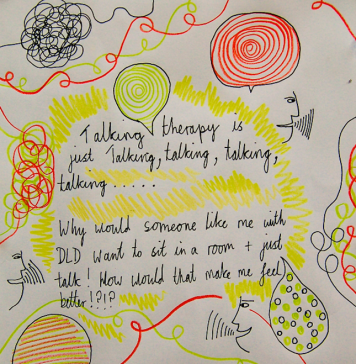 Talking therapy is
just Talking, talking, talking,
talking.....
Why would someone like me with
DLD want to sit in a room + just
talk! How would that make me feel
better!?!?